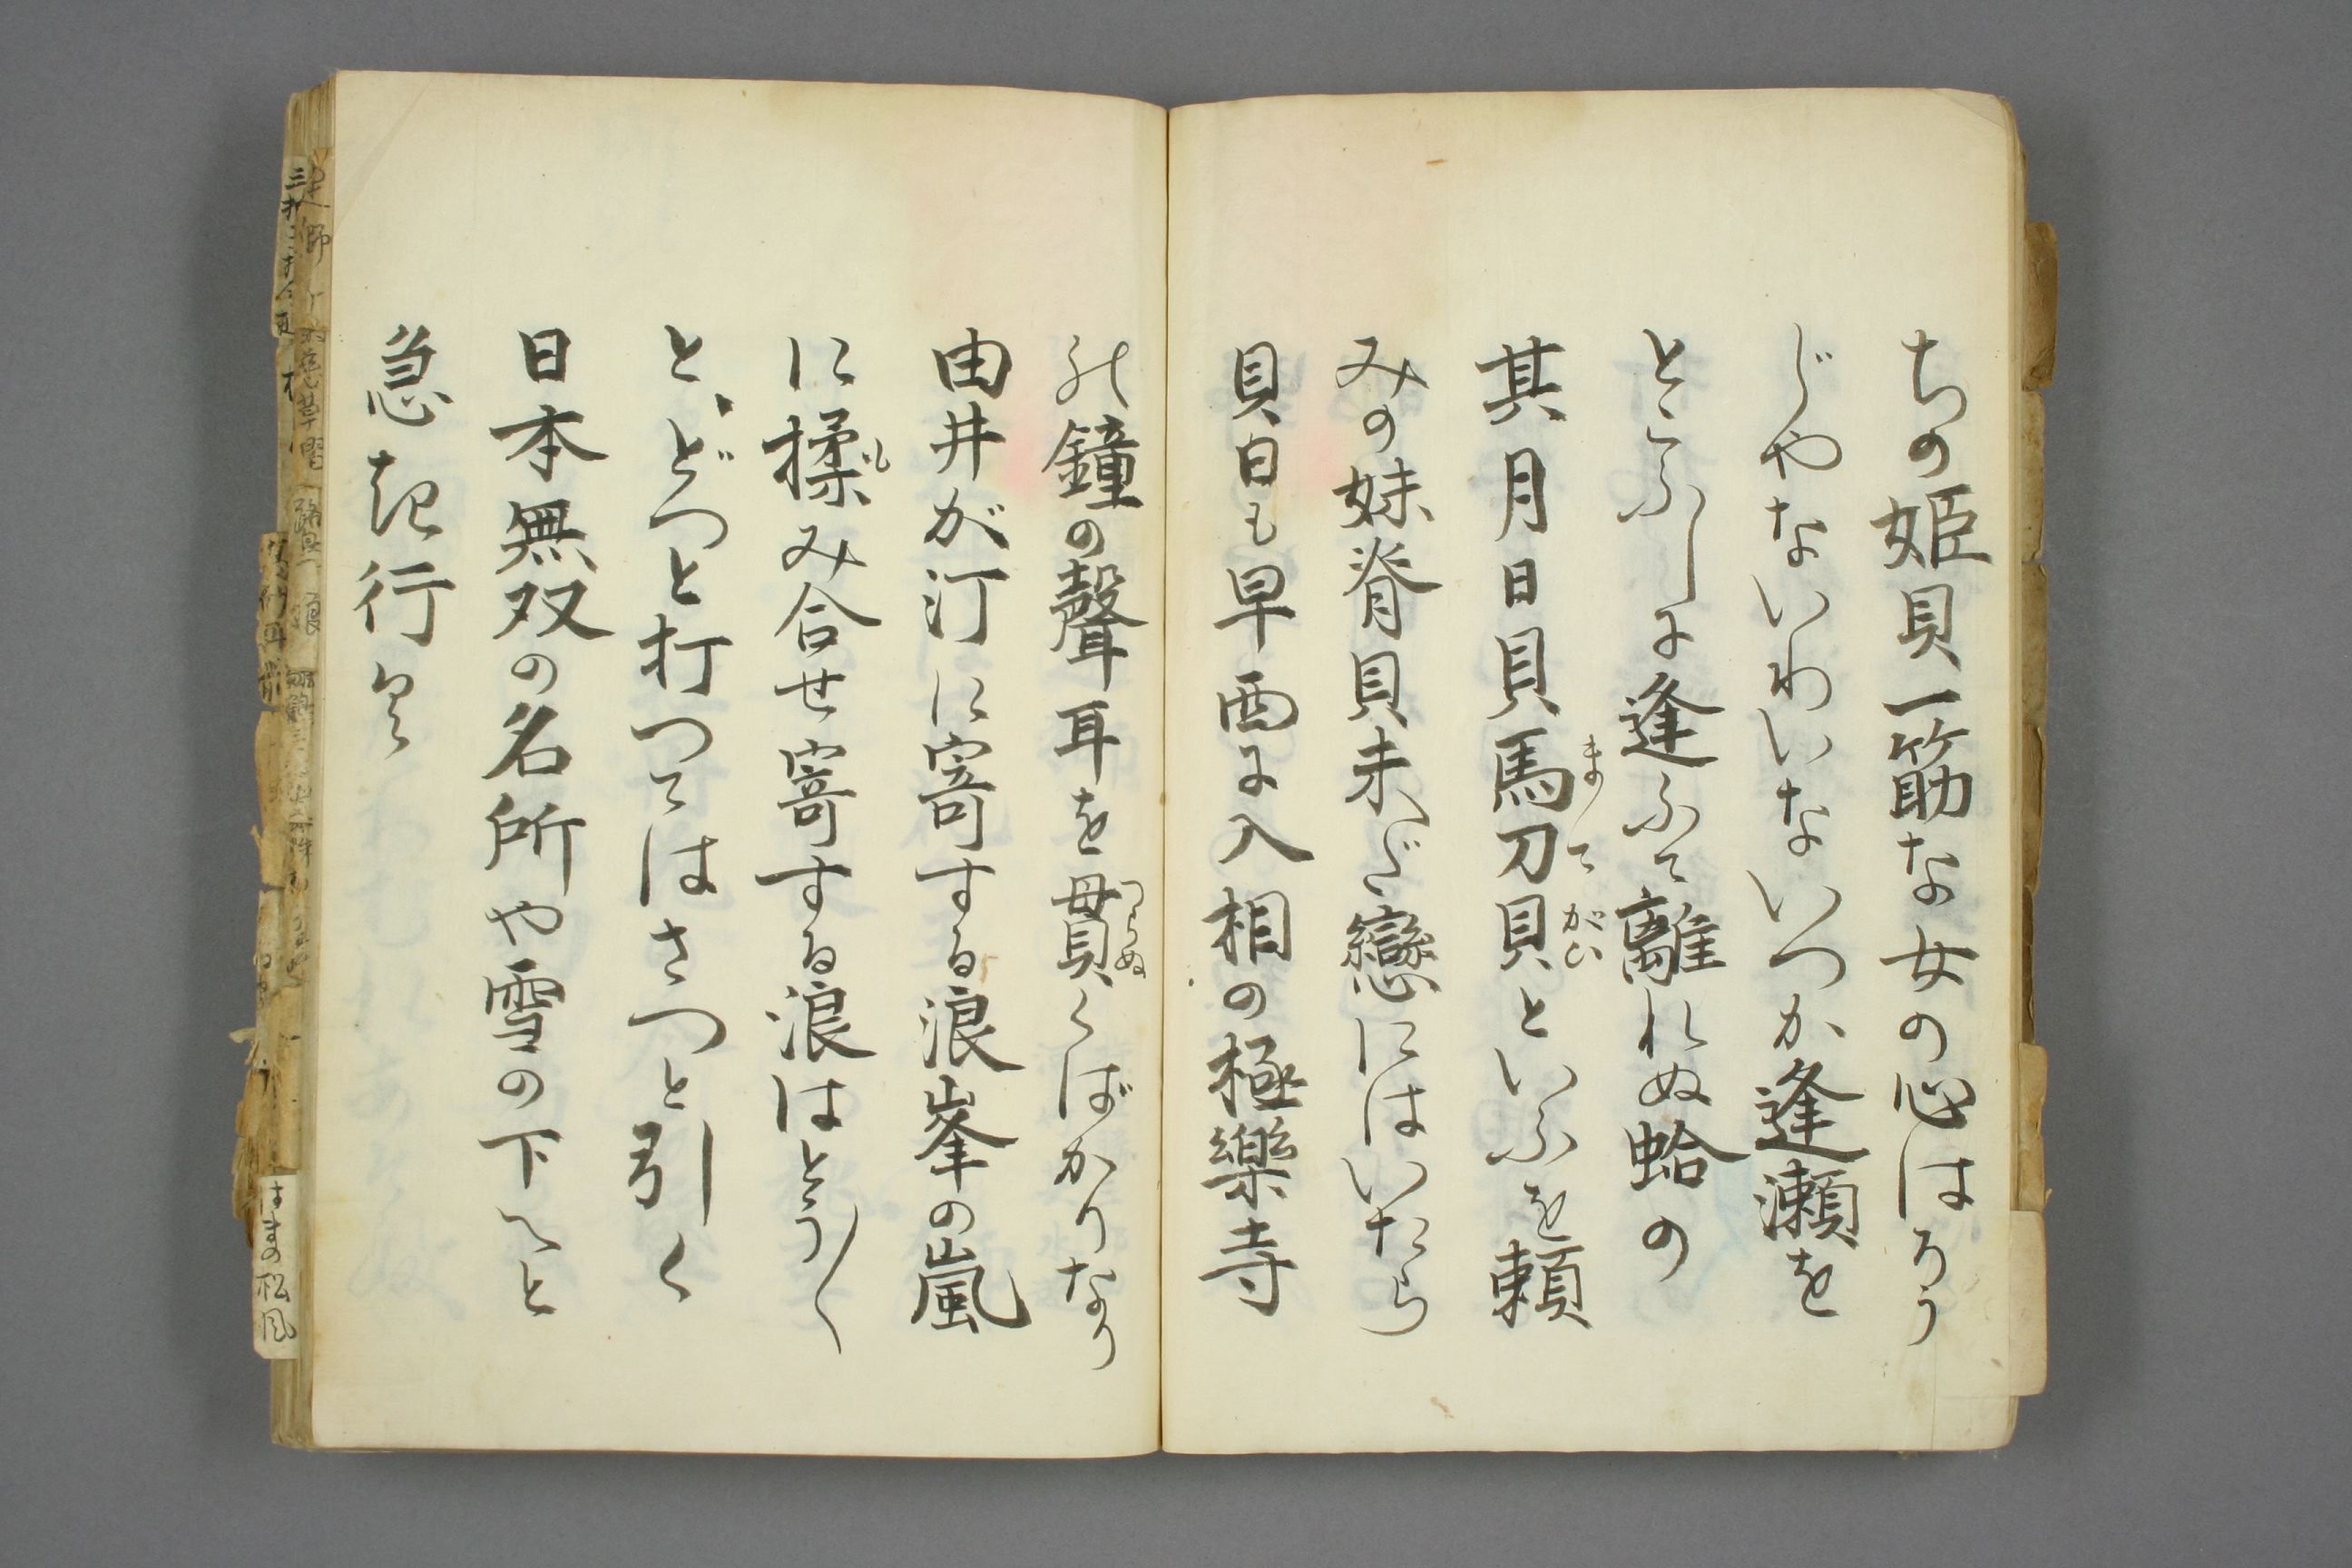 ちの姫貝一筋な女の心はろう
じやないわいないつか逢瀬を
とこふしに逢ふて離れぬ蛤の
其月日貝馬刀貝といふを頼
まて
がい
みの妹脊貝未だ戀にはいたら
貝日も早西に入相の極樂寺
の鐘の聲耳を貫くばかりなり
つらぬ
由井が汀に寄する浪峯の嵐
に揉み合せ寄する浪はとう〳〵
も
とゞどつと打つてはさつと引く
日本無双の名所や雪の下へと
急ぎ行
はまの松風